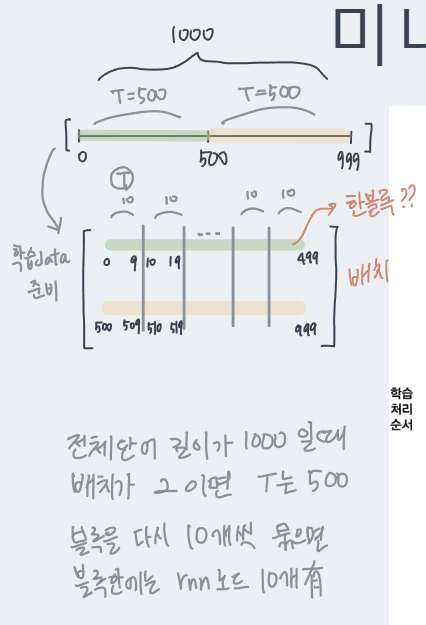 미니
1000
T=500 T=500
[ 0 500 999 ]
T
10 10 10 10
한블록??
...
학습data
준비
0 9 10 19 499
배치
500 509 510 519 999
학습
처리
순서
전체단어 길이가 1000 일때
배치가 2 이면 T는 500
블록을 다시 10개씩 묶으면
블록안에는 rnn노드 10개有